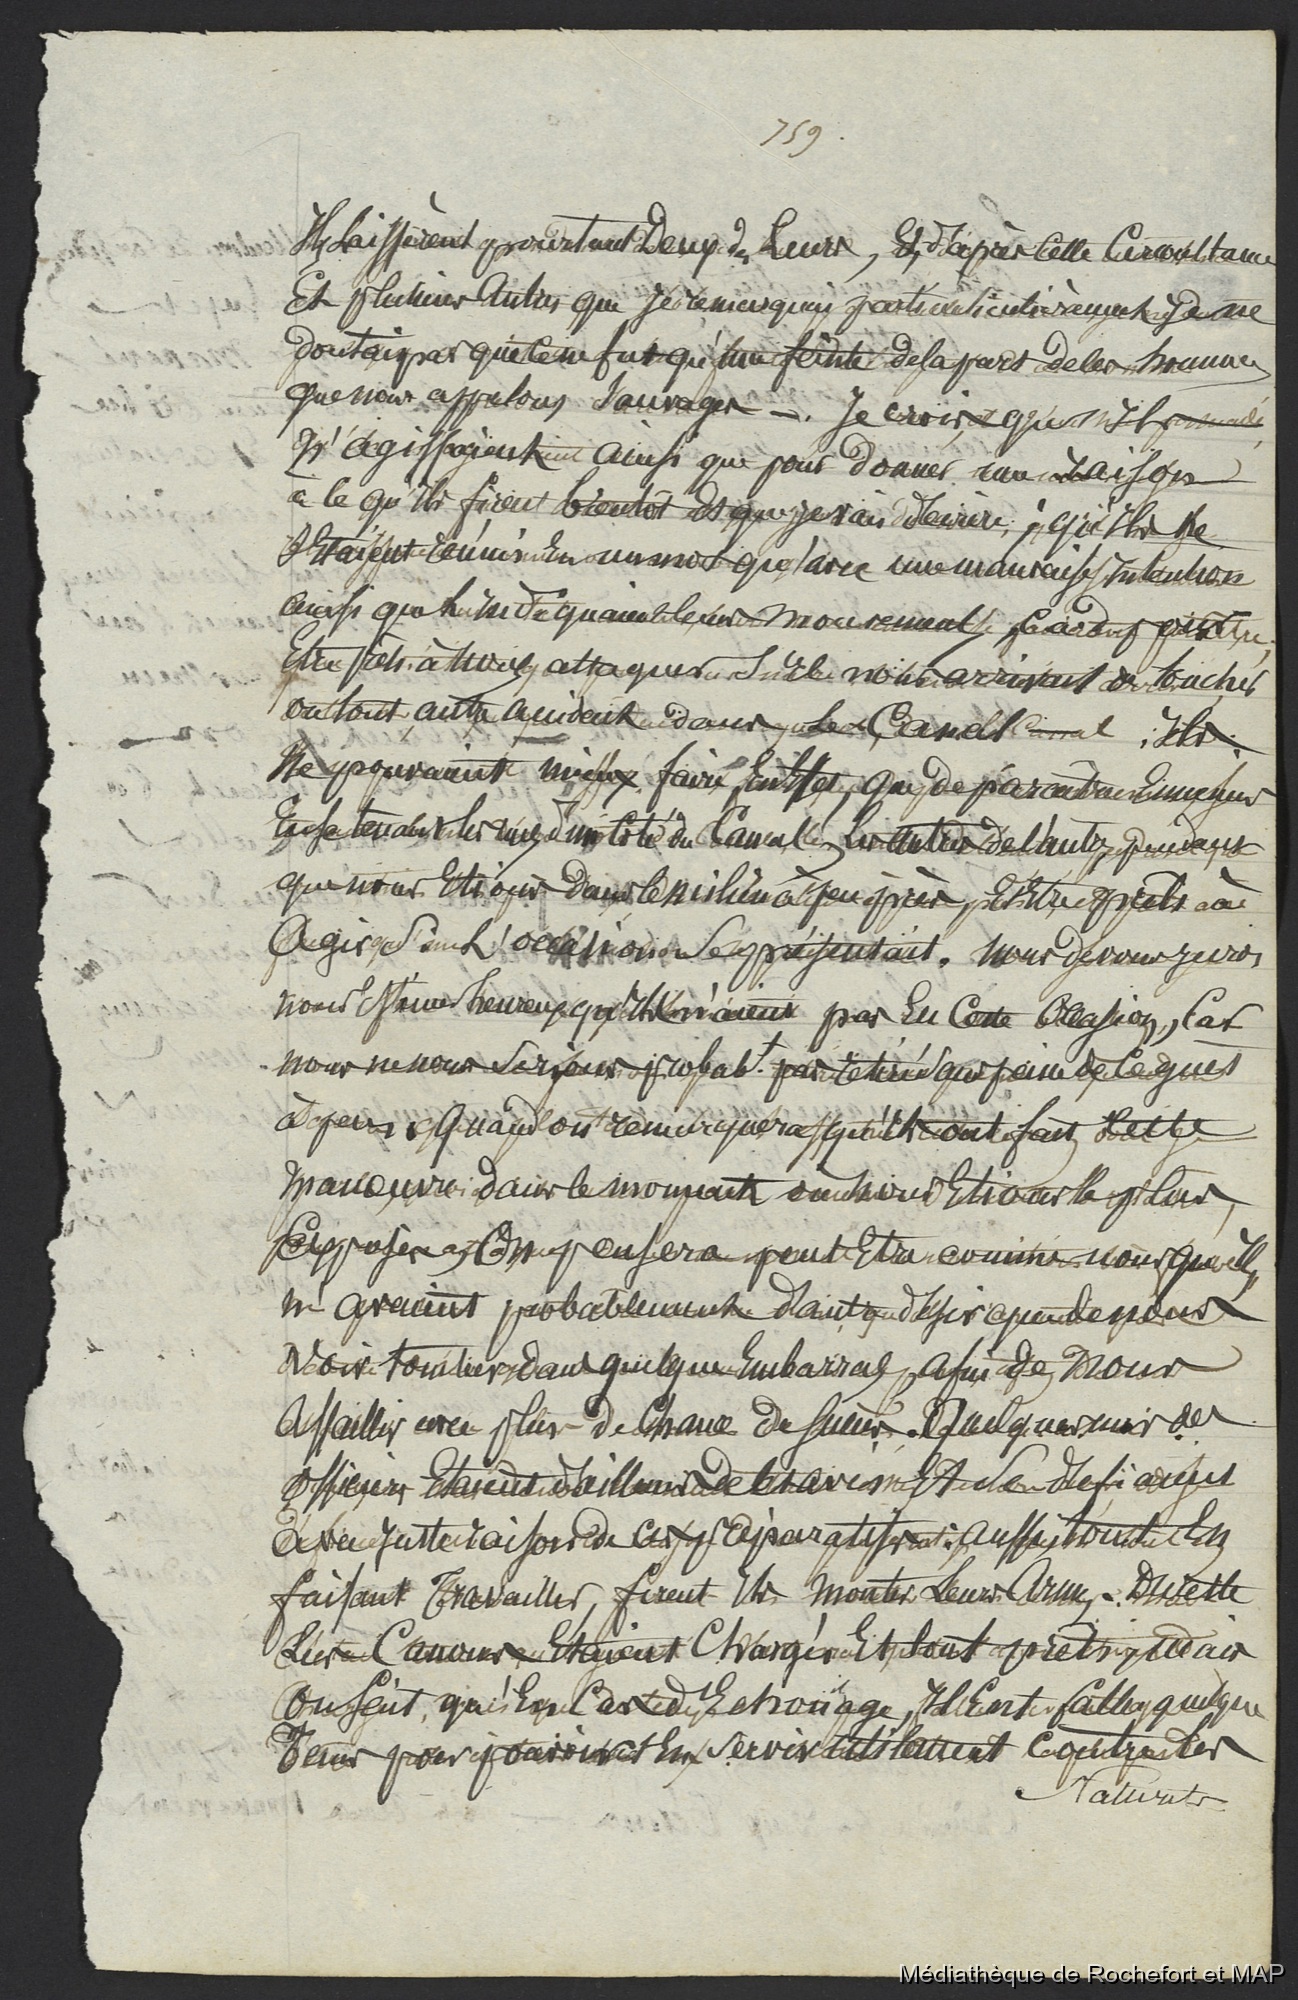 759.
Ils Laissèrent pourtant Deux de Leurs, Et, d'après Cette Circonstance
Et plusieurs Autres que je remarquai particulièrement, Je ne
doutai pas que ce ne fut qu'une feinte de la part de ces hommes
que nous appelons Sauvages. Je crois que
n'agissaient ainsi que pour donner une raison
à ce qu'ils firent bientôt et que je vais décrire, qu'ils ne
S'Etaient réunis En un mot qu'avec une mauvaise Intention
ainsi que l'indiquaient leurs mouvements, peut
Etre prêts à nous attaquer Si nous arrivait de toucher
ou tout autre accident dans Le Canal. Ils
Ne pouvaient mieux faire En Effet, que de paraître
En se tenant les uns d'un Côté du Canal, Les autres de L'autre, pendant
que nous Etions dans le milieu à peu près, Et Etre prêts à
Agir Si L'occasion Se présentait. Nous devons
nous Estimer heureux qu'ils n'aient pas Eu Cette Occasion, Car
nous ne nous Serions probabt. pas retirés Sans peine de Ce guet
à pens. Quand on remarquera qu'ils ont fait Cette
Manœuvre dans le moment où nous Etions le plus
Exposés, On pensera peut Etre comme nous qu'ils
n'avaient probablement d'autre désir que de nous
Voir tomber dans quelque Embarras, afin de Nous
Assaillir avec plus de Chance de Succès. Quelques uns des
officiers Etaient d'ailleurs de Cet avis Et Se défiaient
avec juste raison de Ces préparatifs, aussi tout En
faisant Travailler, firent Ils Monter Leurs Armes.
Les Canons Etaient Chargés Et tout prêts, mais
On Sent, qu'En Cas d'Echouage, Il Eut fallu quelque
Tems pour pouvoir s'En Servir utilement Contre Les
Naturels
Médiathèque de Rochefort et MAP